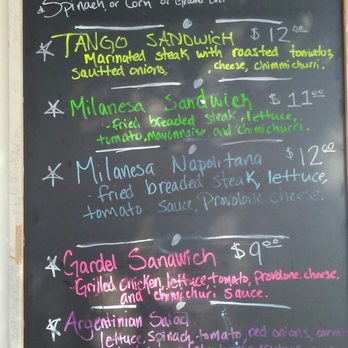 Spinach or Corn or
TANGO SANDWICH $12.00
Marinated steak with roasted tomatos,
Sautted onions, cheese, chimmichurri.
Milanesa Sandwich $11.00
-fried breaded steak, lettuce,
tomato, mayonnaise, and chimichurri.
Milanesa Napolitana $12.00
-fried breaded steak, lettuce,
tomato sauce, Provolone cheese.
Gardel Sandwich $9.00
-Grilled chicken, lettuce, tomato, provolone cheese,
and chimichuri sauce.
Argentinian Salad
lettuce, Spinach, tomato, red onions, carrot